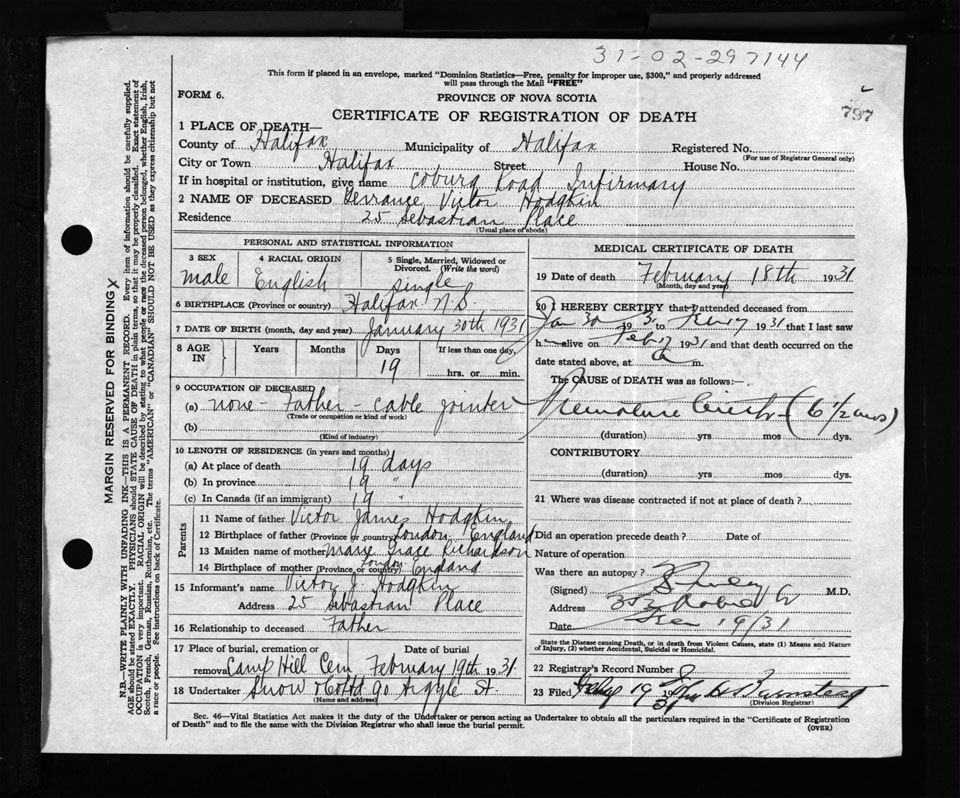 31-02-297144
This form if placed in an envelope, marked "Dominion Statistics—Free, penalty for improper use, $300," and properly addressed
will pass through the Mail "FREE"
FORM 6.
PROVINCE OF NOVA SCOTIA
797
CERTIFICATE OF REGISTRATION OF DEATH
1 PLACE OF DEATH—
County of Halifax Municipality of Halifax Registered No.
(For use of Registrar General only)
City or Town Halifax Street House No.
If in hospital or institution, give name Coburg Road Infirmary
2 NAME OF DECEASED Terrance Victor Hodgkin
Residence 25 Sebastian Place
(Usual place of abode)
PERSONAL AND STATISTICAL INFORMATION
3 SEX 4 RACIAL ORIGIN 5 Single, Married, Widowed or
Divorced. (Write the word)
male English single
6 BIRTHPLACE (Province or country) Halifax N.S.
7 DATE OF BIRTH (month, day and year) January 30th 1931
8 AGE IN Years Months Days If less than one day,
19 hrs. or min.
9 OCCUPATION OF DECEASED
(a) none - Father - Cable jointer
(Trade or occupation or kind of work)
(b)
(Kind of industry)
10 LENGTH OF RESIDENCE (in years and months)
(a) At place of death 19 days
(b) In province 19 "
(c) In Canada (if an immigrant) 19 "
Parents
11 Name of father Victor James Hodgkin
12 Birthplace of father (Province or country) London England
13 Maiden name of mother Marie Grace Richardson
14 Birthplace of mother (Province or country) London England
15 Informant's name Victor J. Hodgkin
Address 25 Sebastian Place
16 Relationship to deceased Father
17 Place of burial, cremation or Date of burial
removal Camp Hill Cem February 19th 1931
18 Undertaker Snow & Co Ltd 90 Argyle St.
(Name and address)
MEDICAL CERTIFICATE OF DEATH
19 Date of death February 18th 1931
(Month, day and year)
20 I HEREBY CERTIFY that I attended deceased from
Jan 30 1931 to Feb 17 1931 that I last saw
h alive on Feb 17 1931 and that death occurred on the
date stated above, at a m.
The CAUSE OF DEATH was as follows:—
Premature birth (6 1/2 mos)
(duration) yrs mos dys.
CONTRIBUTORY
(duration) yrs mos dys.
21 Where was disease contracted if not at place of death?
Did an operation precede death? Date of
Nature of operation
Was there an autopsy?
(Signed) M.D.
Address
Date 19/31
State the Disease causing Death, or in death from Violent Causes, state (1) Means and Nature
of Injury, (2) whether Accidental, Suicidal or Homicidal.
22 Registrar's Record Number
23 Filed Feby 19 1931
(Division Registrar)
Sec. 46—Vital Statistics Act makes it the duty of the Undertaker or person acting as Undertaker to obtain all the particulars required in the "Certificate of Registration
of Death" and to file the same with the Division Registrar who shall issue the burial permit.
(OVER)
MARGIN RESERVED FOR BINDING
N.B.—WRITE PLAINLY WITH UNFADING INK—THIS IS A PERMANENT RECORD. Every item of information should be carefully supplied.
AGE should be stated EXACTLY. PHYSICIANS should STATE CAUSE OF DEATH in plain terms, so that it may be properly classified. Exact statement of
OCCUPATION is very important. RACIAL ORIGIN will be described by stating to what people or race the deceased person belonged, whether English, Irish,
Scotch, French, German, Russian, Ruthenian, etc. The terms "AMERICAN" or "CANADIAN" SHOULD NOT BE USED as they express citizenship but not
a race or people. See instructions on back of Certificate.